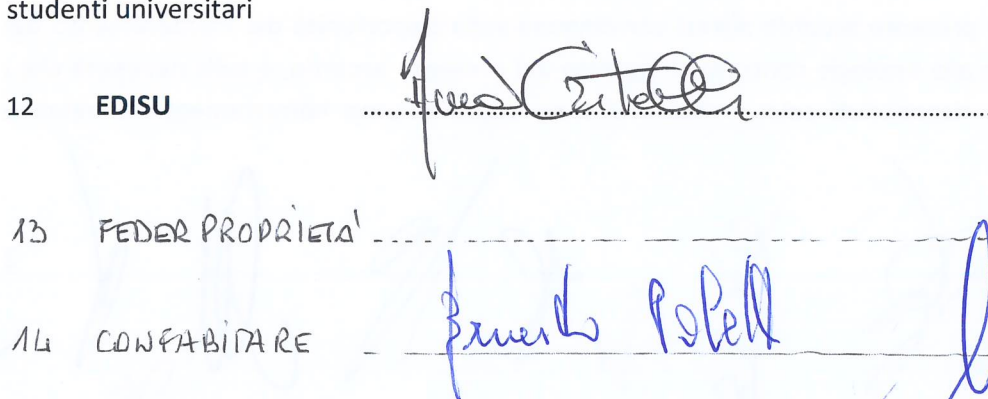 studenti universitari
12 EDISU
13 FEDERPROPRIETA'
14 CONFABITARE